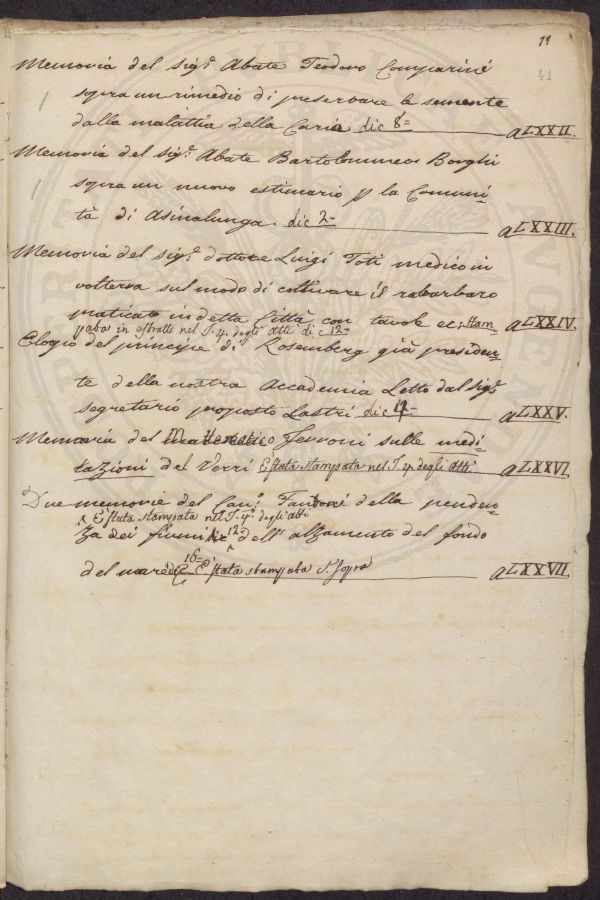 19
41
Memoria del Sig.r Abate Teodoro Comparini
sopra un rimedio di preservare le semente
dalla malattia della Carie dic 8= aLXXII.
Memoria del Sig.r Abate Bartolommeo Borghi
sopra un nuovo estimario p la Comuni-
tà di Asinalunga. dic 2= aLXXIII.
Memoria del Sig.r dottore Luigi Toti medico in
volterra sul modo di coltivare il rabarbaro
praticato in detta Città con tavole ec: Stam- aLXXIV.
pata in estratto nel T. 4. degli Atti di c 12=
Elogio del principe di Rosemberg già presiden-
te della nostra Accademia Letto dal Sig.r
segretario proposto Lastri dic 4= aLXXV.
Memoria del Matematico Ferroni sulle medi-
tazioni del Verri È stata stampata nel T. 4. degli Atti aLXXVI.
Due memorie del Can.o Fantoni della penden-
È stata stampata nel T. 4.o degli Atti
za dei fiumi 12= dell' alzamento del fondo
del mare dic 16= È stata stampata T. sopra aLXXVII.